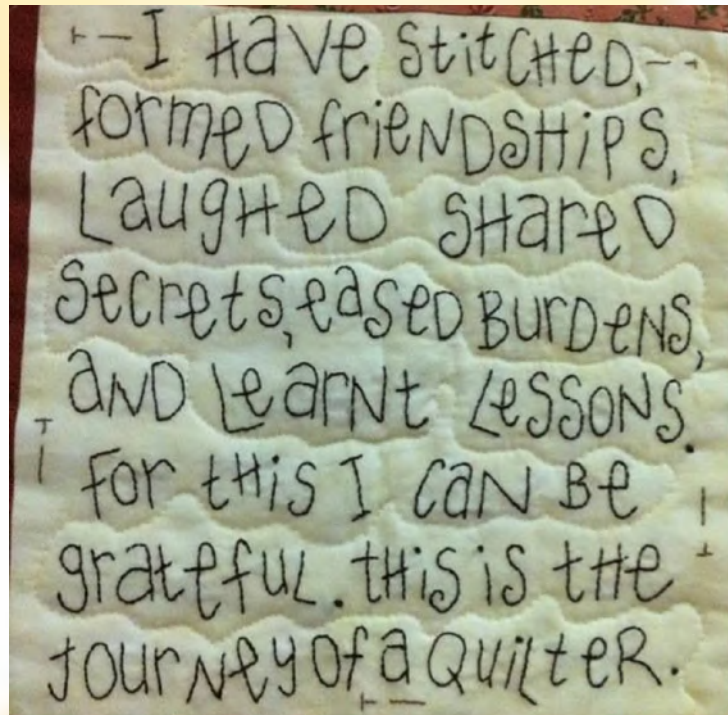 I Have StitCHeD,
formeD frieNDSHiPS,
LaugHeD SHareD
SecretS, eaSeD BurDeNS,
aND LearNt LeSSONS.
for tHiS I CaN Be
grateful. tHiS iS tHe
JourNey Of a QuiLteR.